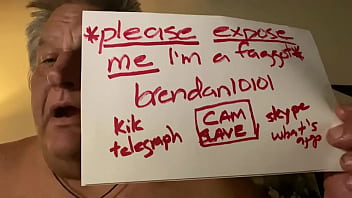 *please expose
me I'm a faggot*
brendan10101
kik
telegraph
CAM
SLAVE
skype
what's
app